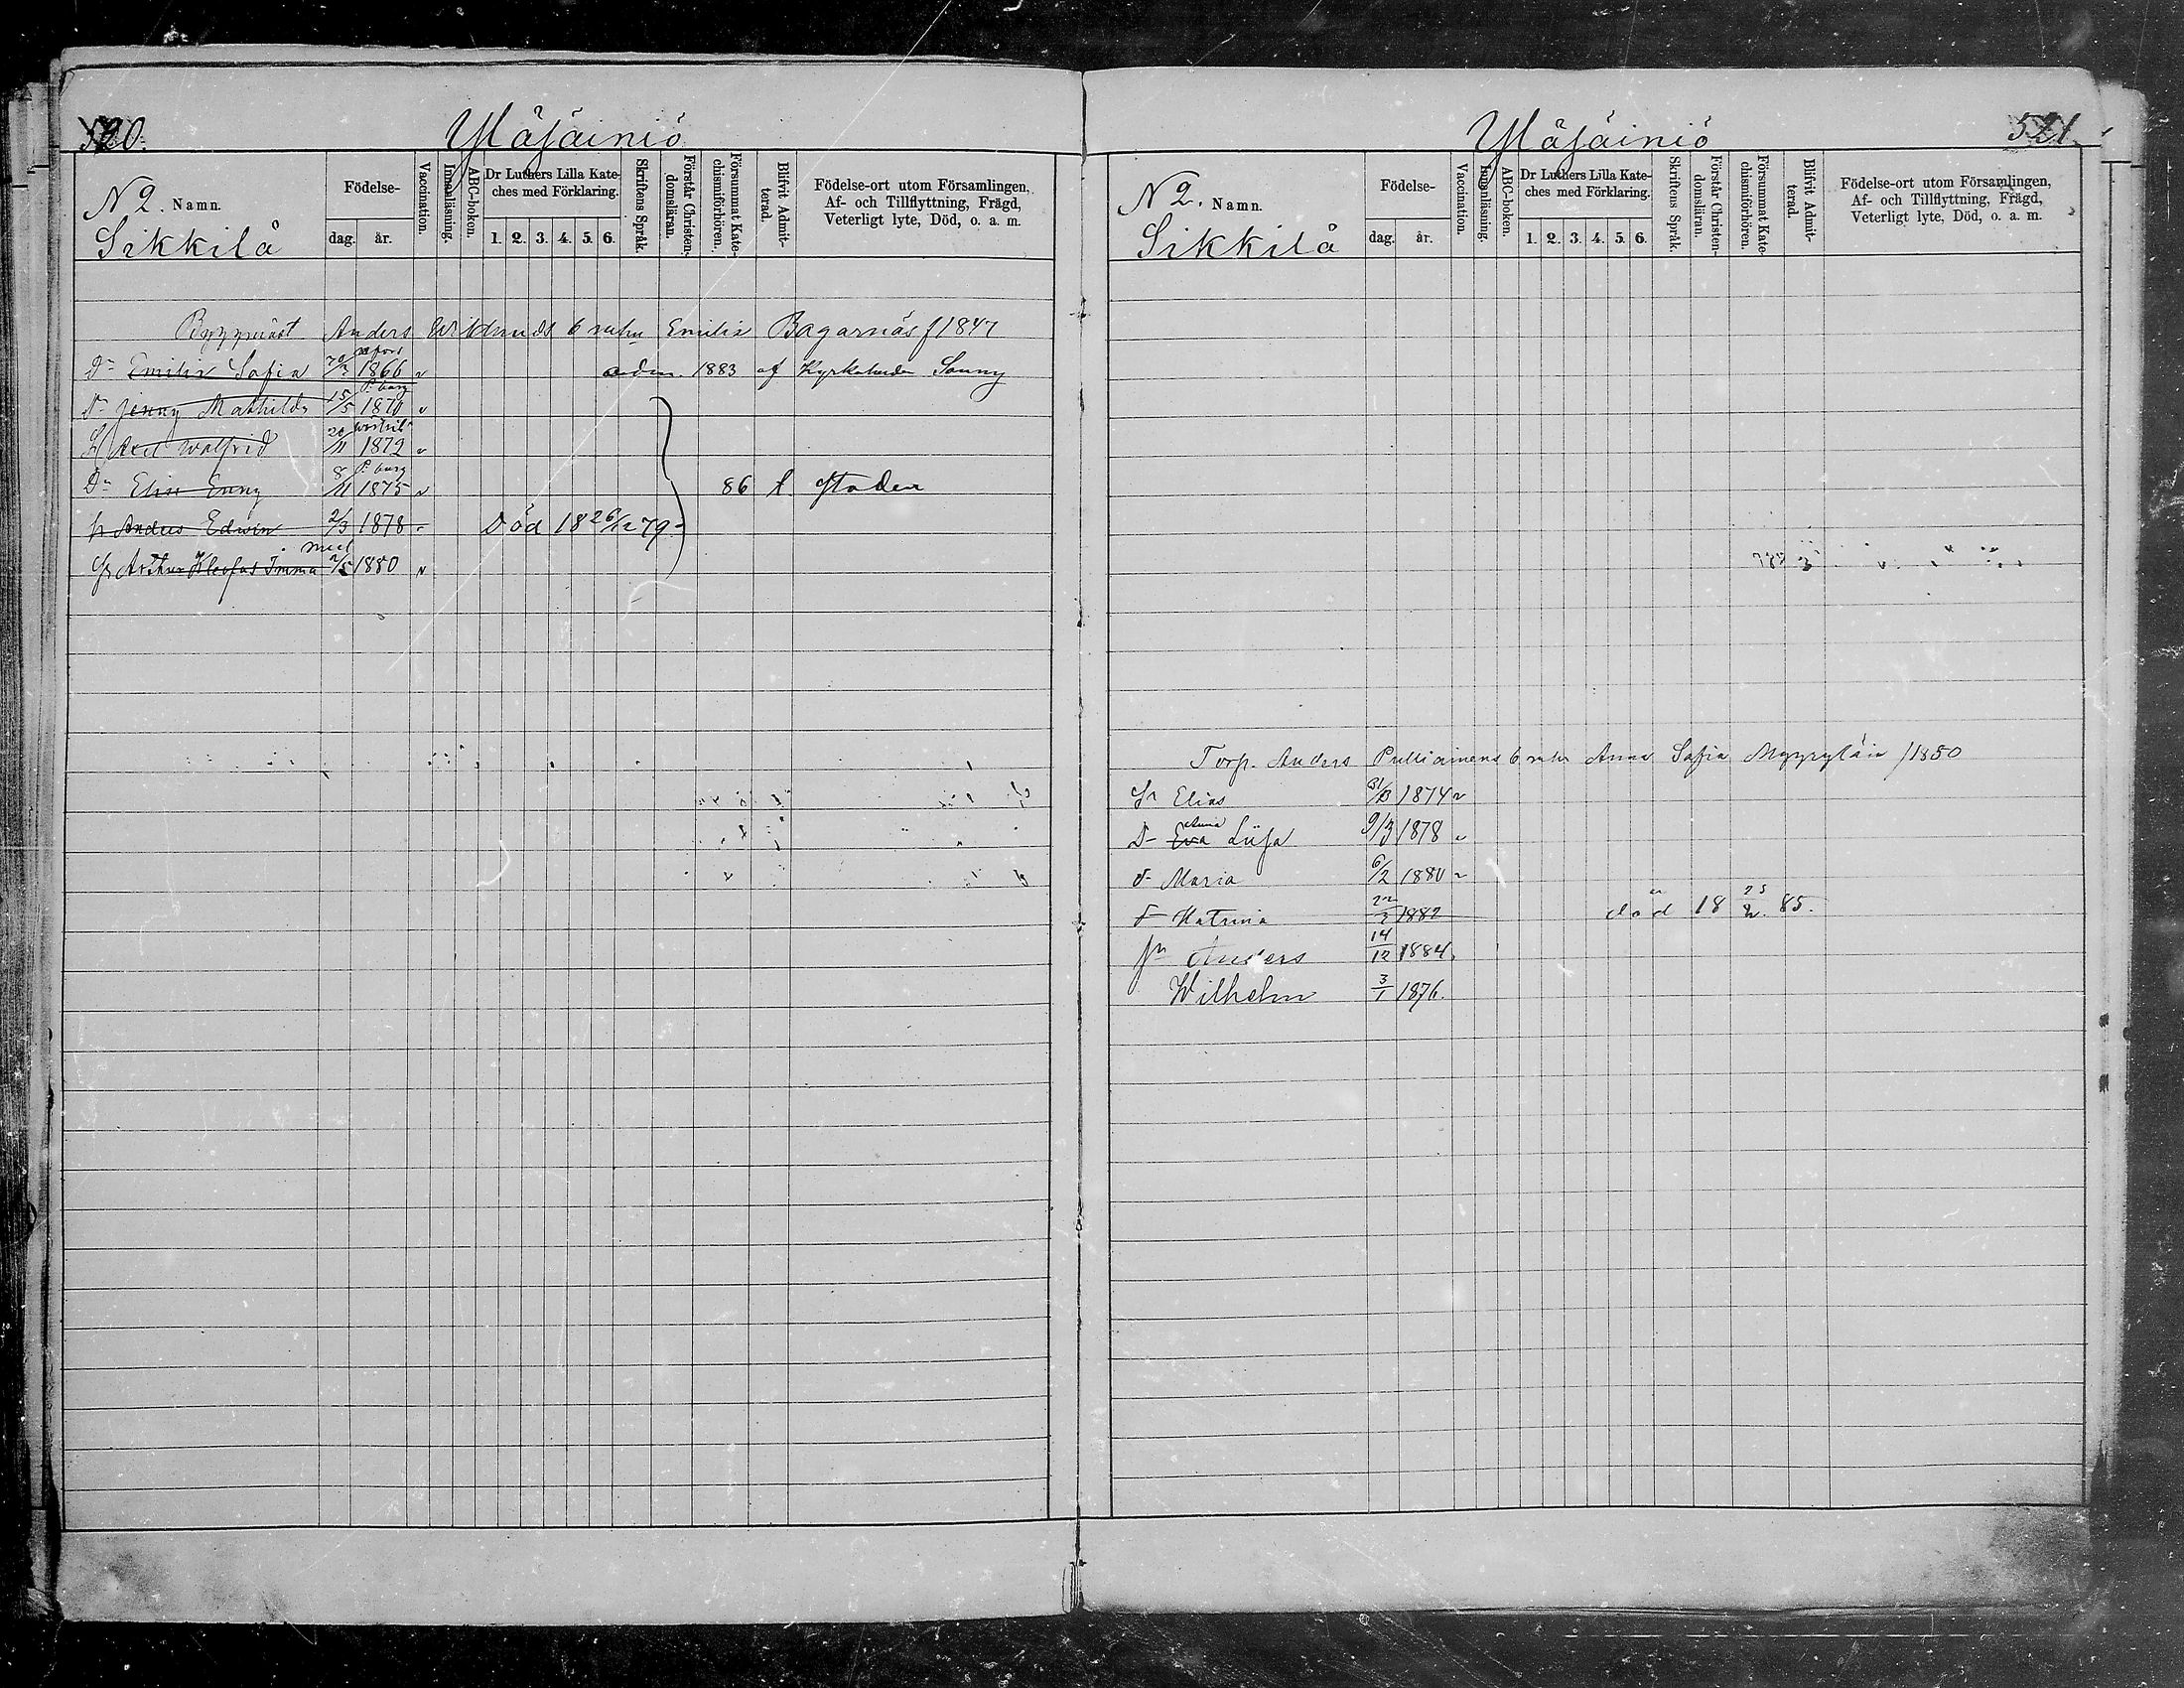 520.
Yläjäiniö
N 2. Namn.
Sikkilä
Födelse-
dag. år.
Vaccination.
Innanläsning.
ABC-boken.
Dr Luthers Lilla Kate-
ches med Förklaring.
1. 2. 3. 4. 5. 6.
Skriftens Språk.
Förstår Christen-
domsläran.
Försummat Kate-
chismiförhören.
Blifvit Admit-
terad.
Födelse-ort utom Församlingen,
Af- och Tillflyttning, Frägd,
Veterligt lyte, Död, o. a. m.
Anders Emilia Bagarnäs f 1847
Dr Emilia Safia 1866 adm. 1883 af
P. burg
Dr Jenny Mathilda 15/5 1870
Axel Walfrid 20/11 1872
P. burg
Dr Elise Enny 8/11 1875 86 t. Staden
Sr Anders Edwin 2/3 1878 Död 18 26/12 79
Sr Arthur Kleofas 1880
521.
Yläjäiniö
N 2. Namn.
Sikkilä
Födelse-
dag. år.
Vaccination.
Innanläsning.
ABC-boken.
Dr Luthers Lilla Kate-
ches med Förklaring.
1. 2. 3. 4. 5. 6.
Skriftens Språk.
Förstår Christen-
domsläran.
Försummat Kate-
chismiförhören.
Blifvit Admit-
terad.
Födelse-ort utom Församlingen,
Af- och Tillflyttning, Frägd,
Veterligt lyte, Död, o. a. m.
Torp. Anders Pulliainens Anna Safia /1850
Sr Elias 1874
Anna
D- Eva Liisa 9/3 1878
d- Maria 6/2 1880
Katrina 1882 död 18 85.
Sn Anders 14/12 1884
Wilhelm 3/1 1876.